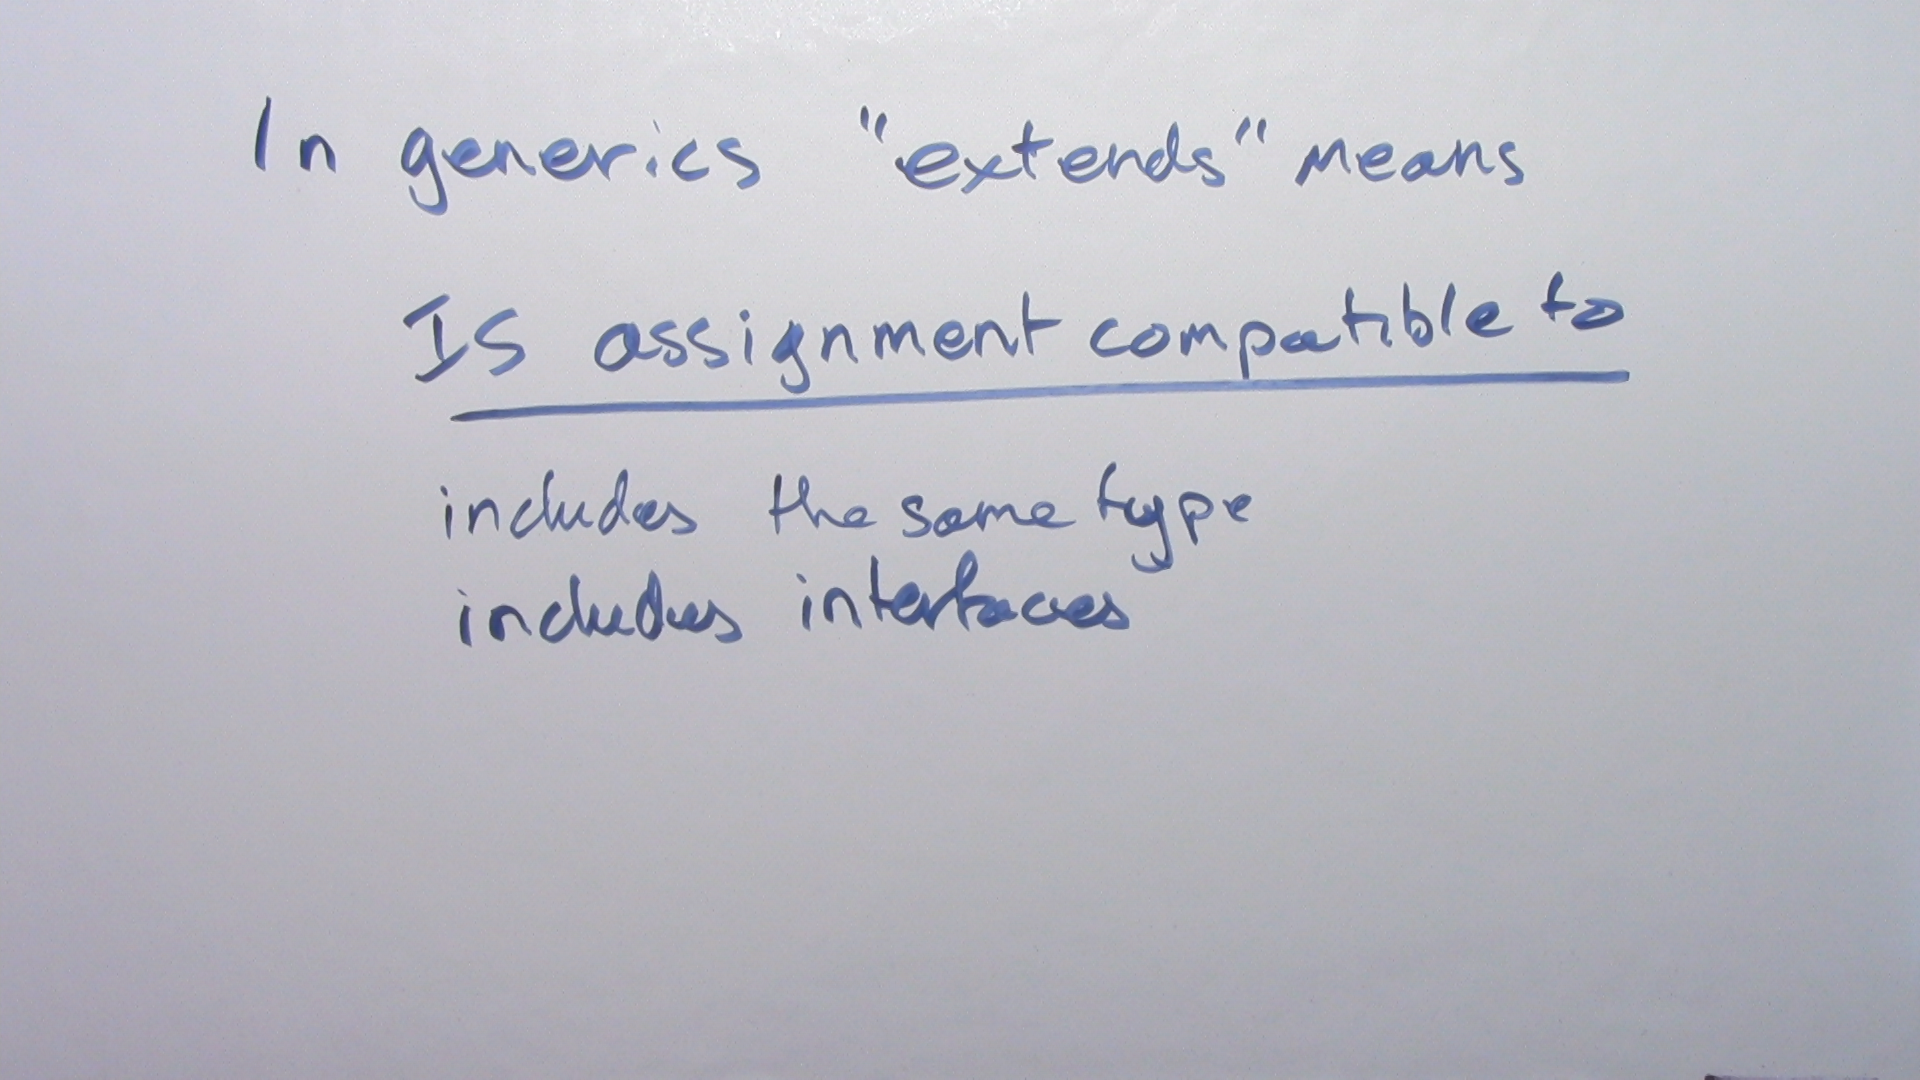 In generics "extends" means
IS assignment compatible to
includes the same type
includes interfaces